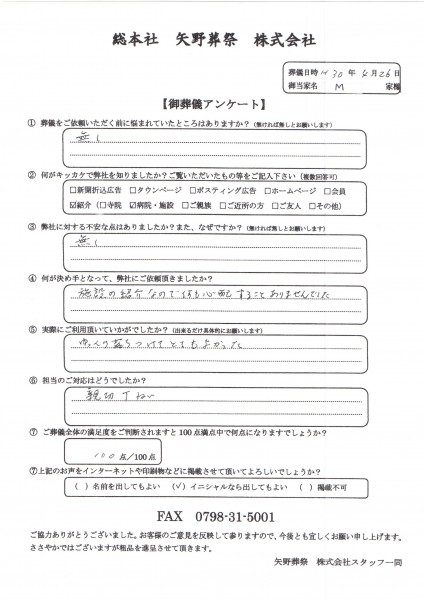 総本社　矢野葬祭　株式会社
葬儀日時 H30年4月26日
御当家名　M　家様
【御葬儀アンケート】
① 葬儀をご依頼いただく前に悩まれていたところはありますか？（無ければ無しとお願いします）
無し
② 何がキッカケで弊社を知りましたか？ご覧いただいたもの等をご記入下さい（複数回答可）
□新聞折込広告　□タウンページ　□ポスティング広告　□ホームページ　□会員
☑紹介（□寺院　☑病院・施設　□ご親族　□ご近所の方　□ご友人　□その他）
③ 弊社に対する不安な点はありましたか？また、なぜですか？（無ければ無しとお願いします）
無し
④ 何が決め手となって、弊社にご依頼頂きましたか？
施設の紹介なので何も心配することありませんでした
⑤ 実際にご利用頂いていかがでしたか？（出来るだけ具体的にお願いします）
落ちつけてとてもよかった
⑥ 担当のご対応はどうでしたか？
親切 丁ねい
⑦ ご葬儀全体の満足度をご判断されますと100点満点中で何点になりますでしょうか？
100点/100点
⑦上記のお声をインターネットや印刷物などに掲載させて頂いてよろしいでしょうか？
（　）名前を出してもよい　（✓）イニシャルなら出してもよい　（　）掲載不可
FAX　0798-31-5001
ご協力ありがとうございました。お客様のご意見を反映して参りますので、今後とも宜しくお願い申し上げます。
ささやかではございますが粗品を進呈させて頂きます。
矢野葬祭　株式会社スタッフ一同